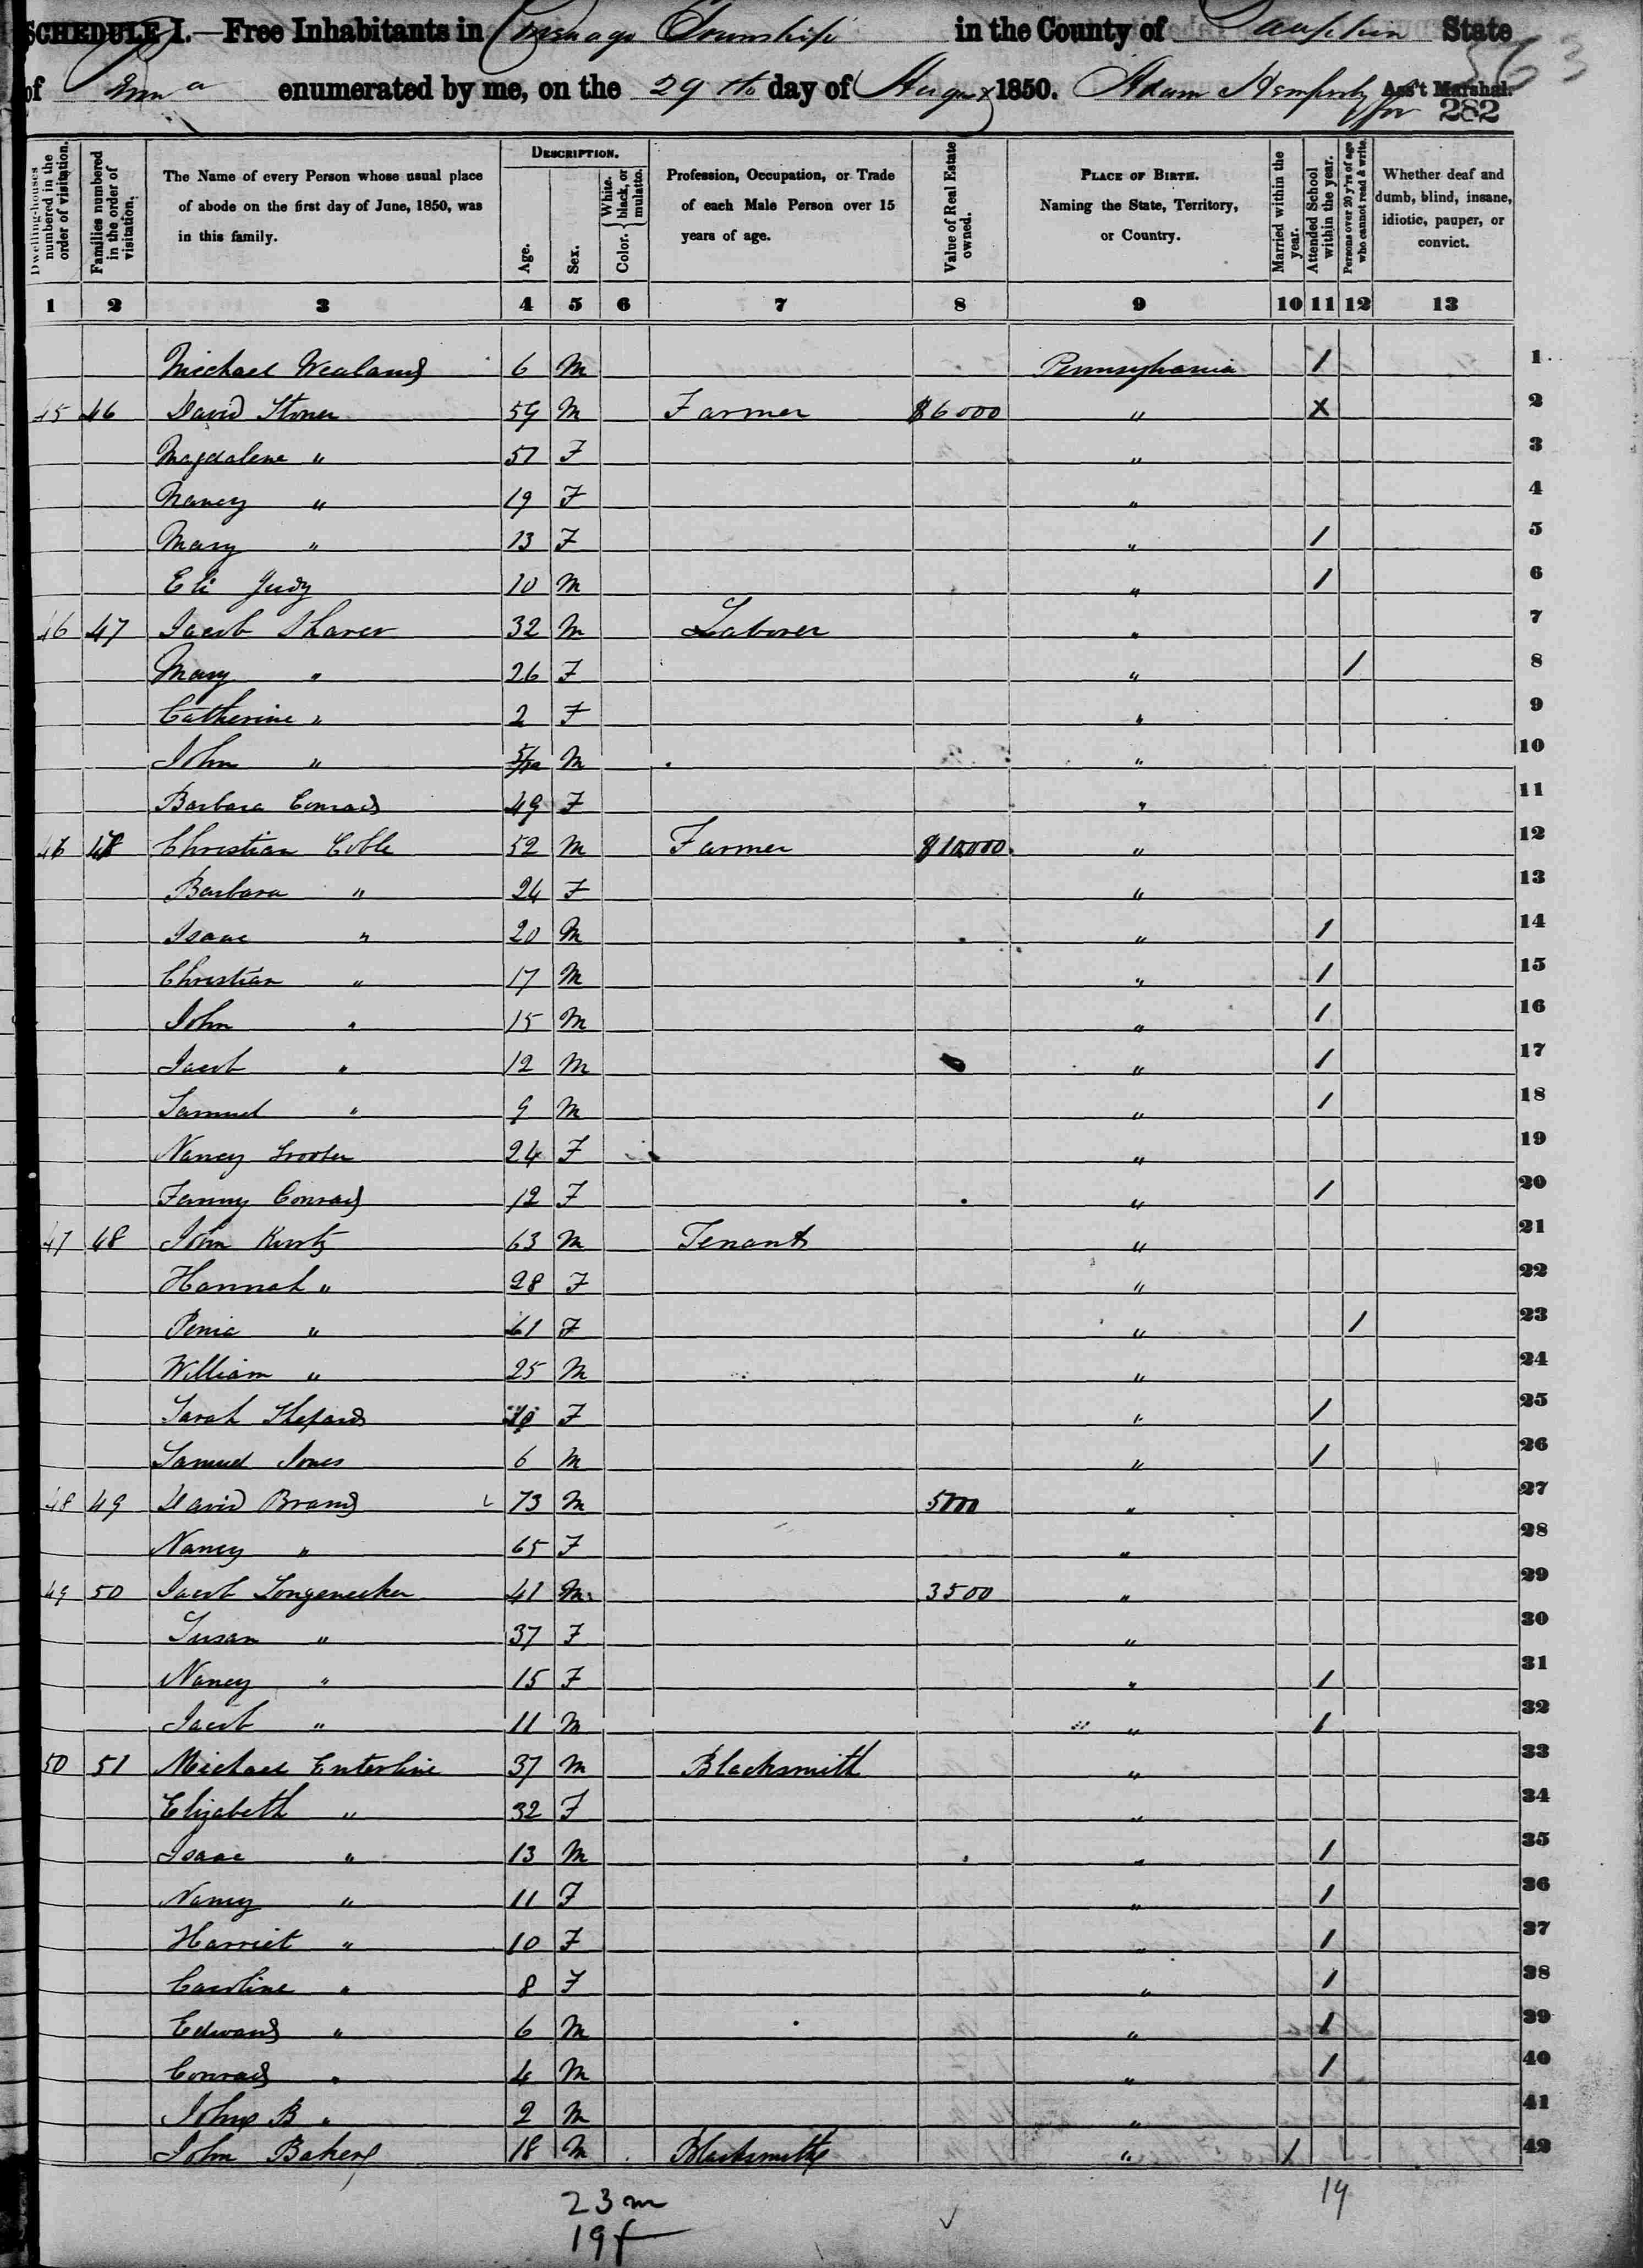 SCHEDULE I.—Free Inhabitants in Conewago Township in the County of Dauphin State
of Penn a enumerated by me, on the 29th day of August 1850. Adam Hemperly Ass't Marshal.
363
282
Dwelling-houses numbered in the order of visitation.
Families numbered in the order of visitation.
The Name of every Person whose usual place of abode on the first day of June, 1850, was in this family.
Description.
Age.
Sex.
Color. { White, black, or mulatto.
Profession, Occupation, or Trade of each Male Person over 15 years of age.
Value of Real Estate owned.
Place of Birth. Naming the State, Territory, or Country.
Married within the year.
Attended School within the year.
Persons over 20 y'rs of age who cannot read & write.
Whether deaf and dumb, blind, insane, idiotic, pauper, or convict.
1 2 3 4 5 6 7 8 9 10 11 12 13
Michael Wealand 6 M Pennsylvania / 1
45 46 David Stoner 59 M Farmer $6000 " X 2
Magdalene " 57 F " 3
Nancy " 19 F " 4
Mary " 13 F " / 5
Eli Judy 10 M " / 6
46 47 Jacob Shaver 32 M Laborer " 7
Mary " 26 F " / 8
Catherine " 2 F " 9
John " 5/12 M " 10
Barbara Conrad 49 F " 11
46 48 Christian Coble 52 M Farmer $10,000 " 12
Barbara " 24 F " 13
Isaac " 20 M " / 14
Christian " 17 M " / 15
John " 15 M " / 16
Jacob " 12 M " / 17
Samuel " 9 M " / 18
Nancy 24 F " 19
Fanny Conrad 12 F " / 20
47 48 John Kurtz 63 M Tenant " 21
Hannah " 28 F " 22
" 61 F " / 23
William " 25 M " 24
Sarah Shepard F " / 25
Samuel Jones 6 M " / 26
48 49 David Brand 73 M 5000 " 27
Nancy " 65 F " 28
49 50 Jacob Longenecker 41 M 3500 " 29
Susan " 37 F " 30
Nancy " 15 F " / 31
Jacob " 11 M " / 32
50 51 Michael Enterline 37 M Blacksmith " 33
Elizabeth " 32 F " 34
Isaac " 13 M " / 35
Nancy " 11 F " / 36
Harriet " 10 F " / 37
Caroline " 8 F " / 38
Edward " 6 M " / 39
Conrad " 4 M " / 40
John B " 2 M " 41
John Baker 18 M Blacksmith " / 42
23 m
19 f
19